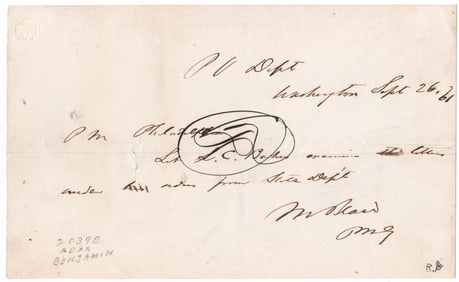 P O Dept
Washington Sept 26, 61
P M Philadelphia
Let L. C. Baker examine the letters
under his orders from State Dept
M Blair
PMG
2039B
AEXX
BENJAMIN
R.B